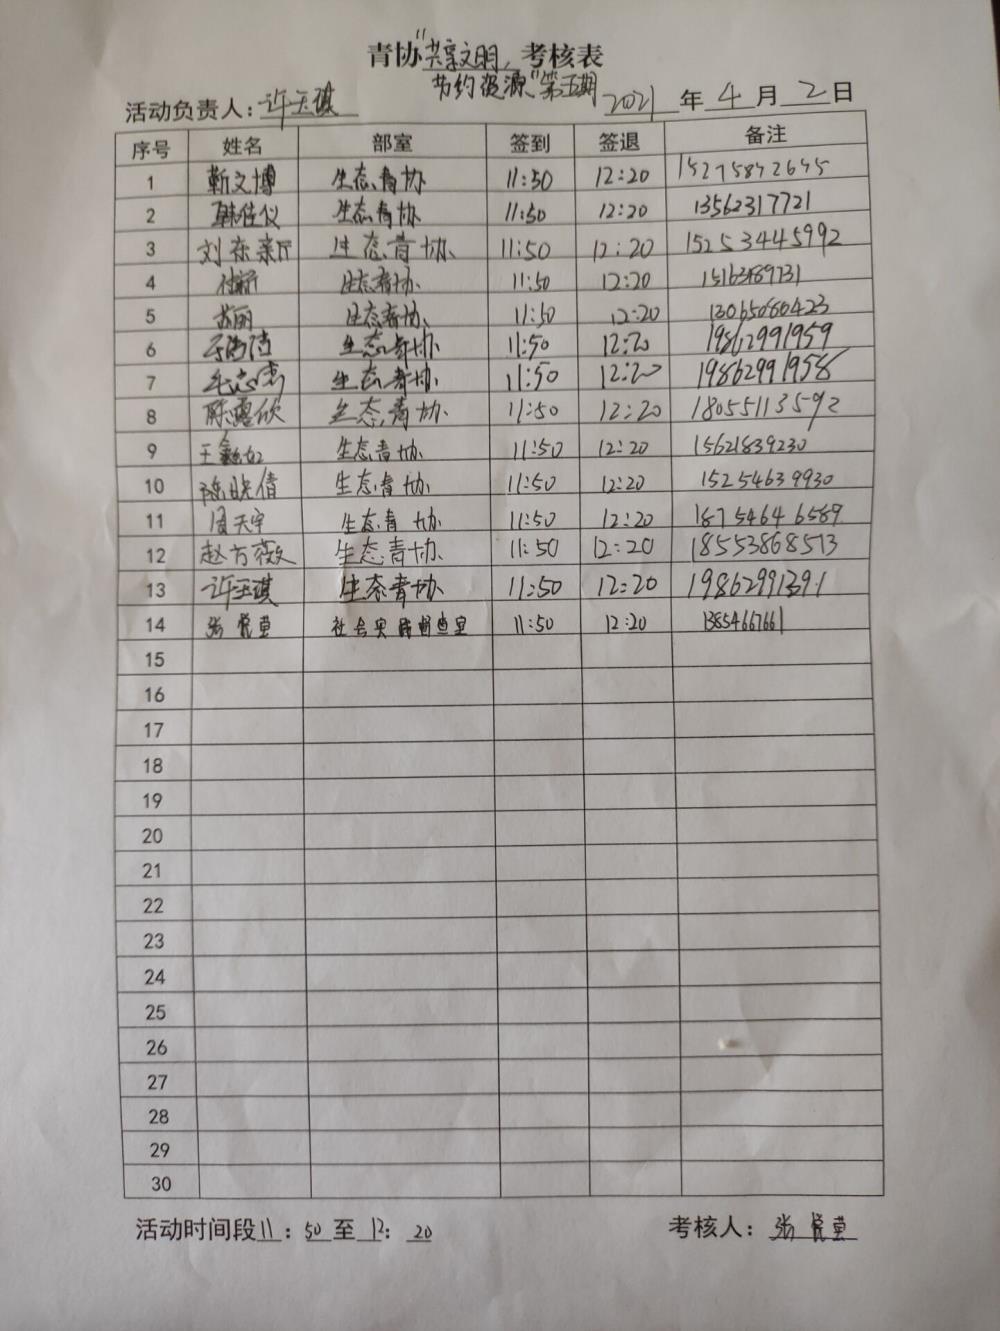 青协"共享文明，考核表
节约资源"第五期
活动负责人：许玉琪 2021年4月2日
序号 姓名 部室 签到 签退 备注
1 靳文博 生态青协 11:50 12:20 15275842645
2 韩佳仪 生态青协 11:50 12:20 13562317721
3 刘东亲 生态青协 11:50 12:20 15253445992
4 生态青协 11:50 12:20
5 苏丽 生态青协 11:50 12:20 13065060423
6 生态青协 11:50 12:20 19862991959
7 生态青协 11:50 12:20 19862991958
8 陈露欣 生态青协 11:50 12:20 18055113592
9 王 生态青协 11:50 12:20 15621839230
10 陈晓倩 生态青协 11:50 12:20 15254639930
11 周天宇 生态青协 11:50 12:20 18754646589
12 赵方薇 生态青协 11:50 12:20 18553868513
13 许玉琪 生态青协 11:50 12:20 19862991391
14 张 社会实践 11:50 12:20 13854667661
15
16
17
18
19
20
21
22
23
24
25
26
27
28
29
30
活动时间段11：50至12：20 考核人：张